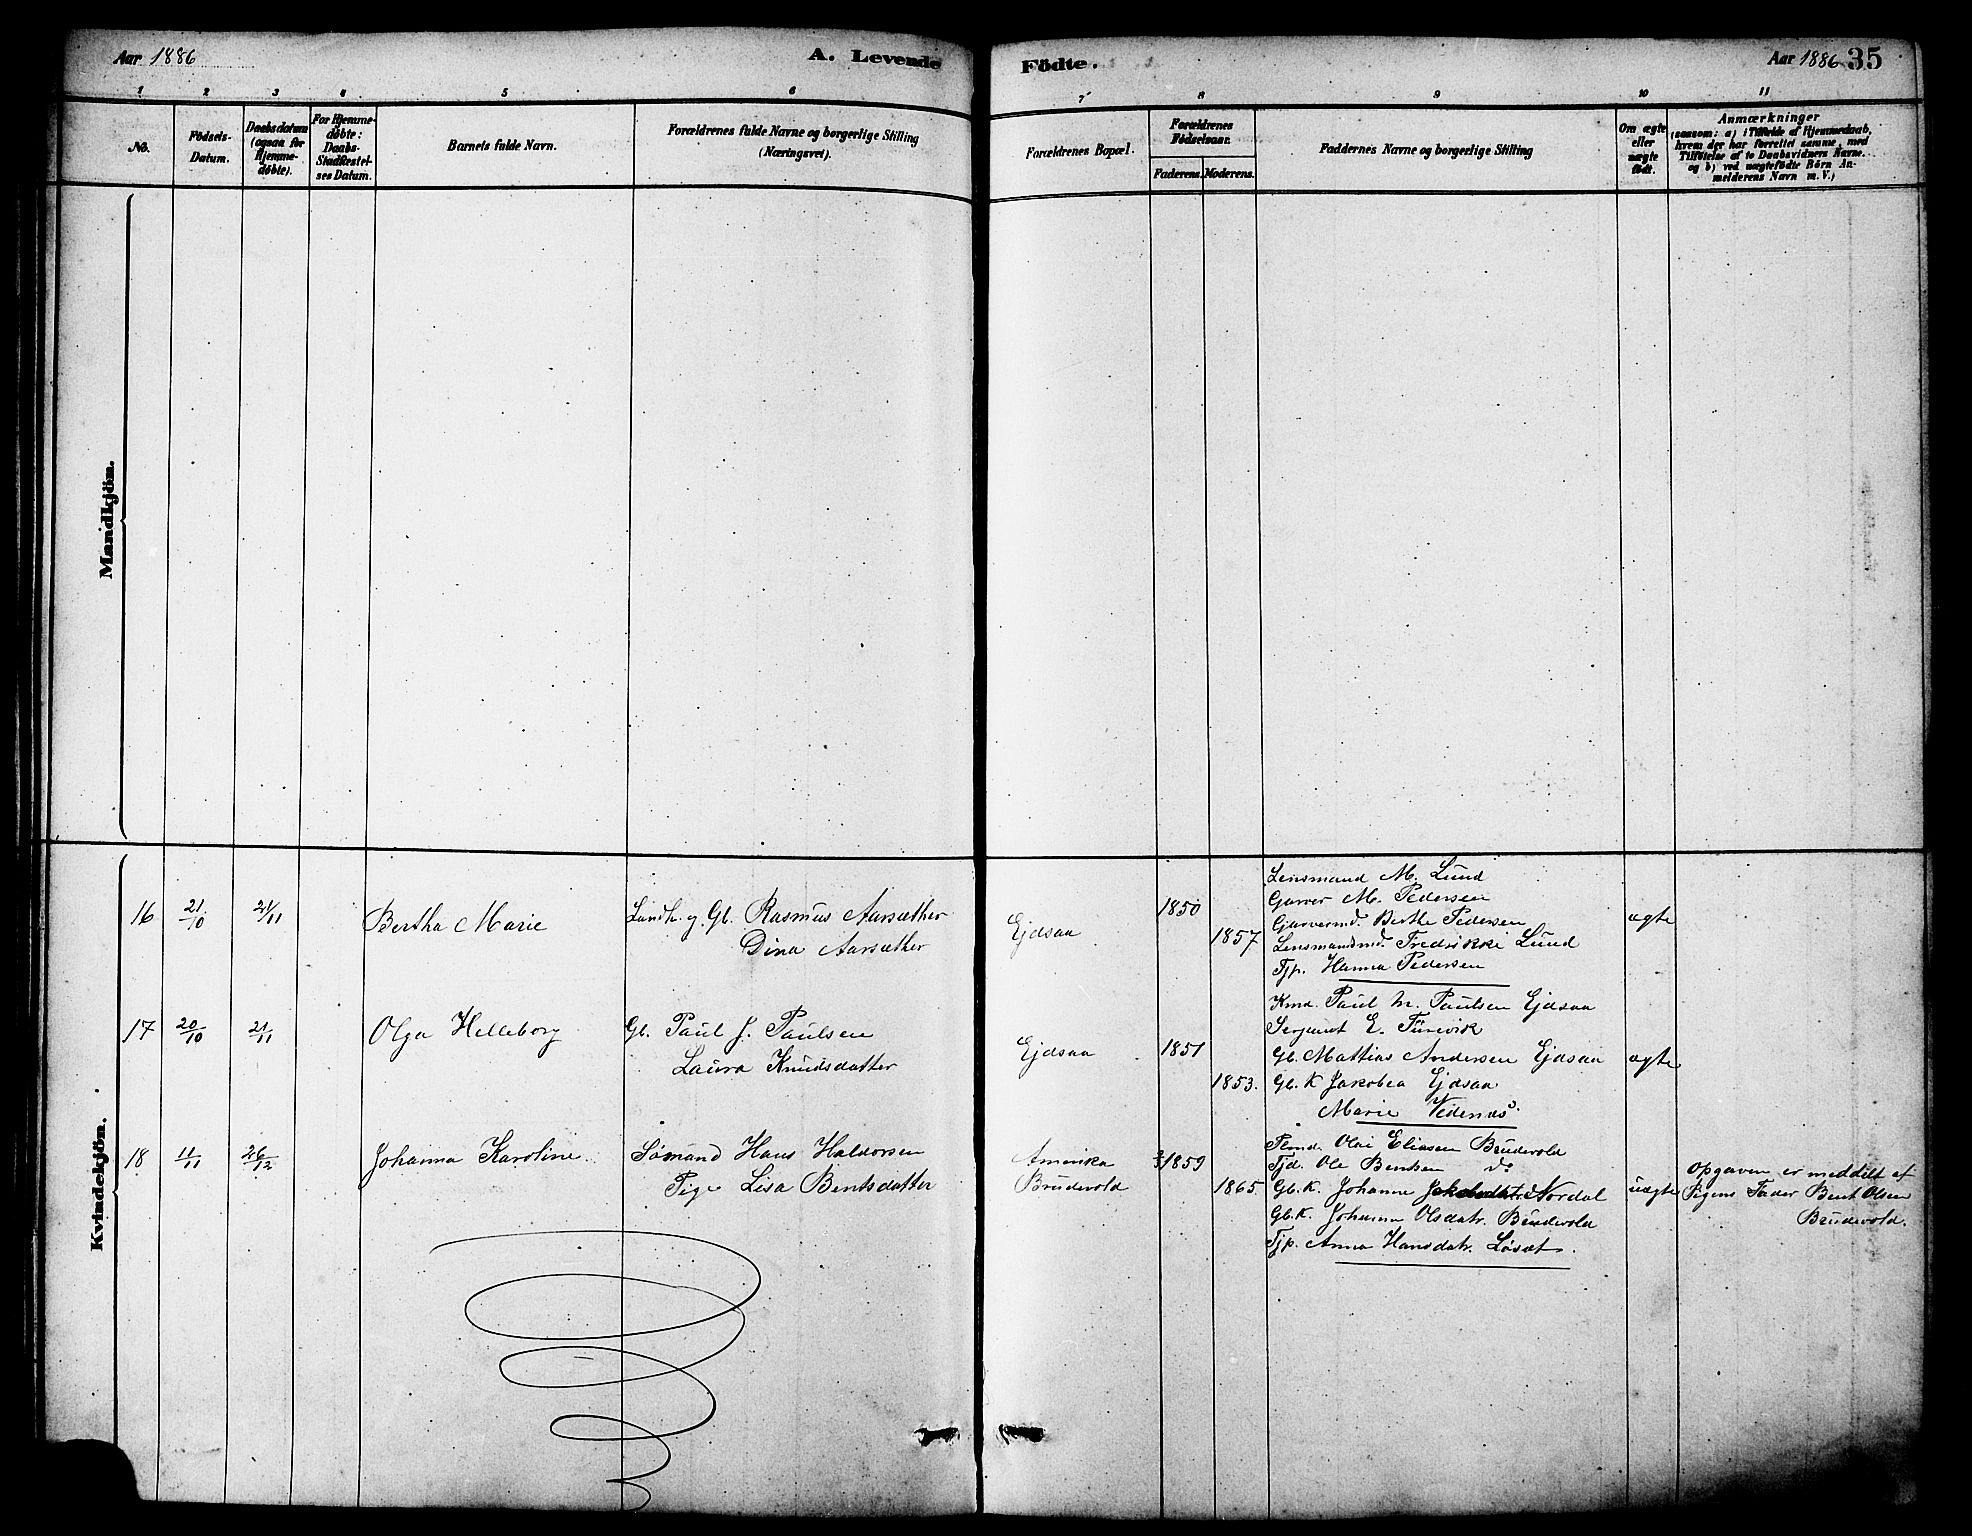 Aar 1886
A. Levende
Födte.
Aar 1886 35
1 2 3 4 5 6 7 8 9 10 11
No.
Födsels-
Datum.
Daabsdatum
(ogsaa for
Hjemme-
döbte).
For Hjemme-
döbte:
Daabs-
Stadfæstel-
ses Datum.
Barnets fulde Navn.
Forældrenes fulde Navne og borgerlige Stilling
(Næringsvei).
Forældrenes Bopæl.
Forældrenes
Födselsaar.
Faderens. Moderens.
Faddernes Navne og borgerlige Stilling
Om ægte
eller
uægte
födt.
Anmærkninger
(saasom: a) i Tilfælde af Hjemmedaab,
hvem der har forrettet samme, med
Tilföielse af to Daabsvidners Navne.
og b) ved uægtefödte Börn An-
melderens Navn m. V.)
Mandkjön.
Kvindekjön.
16 21/10 21/11 Bertha Marie
Landh. g. Gb. Rasmus Aarsæther
Dina Aarsæther
Ejdsaa
1850
1857
Lensmand M. Lund
Garver M. Pedersen
Garvermd. Berthe Pedersen
Lensmandmd. Fredrikke Lund
Tjp. Hanna Pedersen
ægte
17 20/10 21/11 Olga Helleborg
Gb. Paul J. Paulsen
Laura Knudsdatter
Ejdsaa
1851
1853.
Kmd. Paul M. Paulsen Ejdsaa
Sergeant E.
Gb. Mattias Andersen Ejdsaa
Gb. K Jakobea Ejdsaa
Marie Videnæs
ægte
18 11/11 26/12 Johanna Karoline
Sømand Hans Haldorsen
Pige Lisa Bentsdatter
Amerika
Brudevold
1859
1865.
Olai Eliasen Brudevold
Tjd. Ole Bentsen do
Gb. K. Johanne Nordal
Gb. K. Johanna Olsdatr. Brudevold
Tjp. Anna Hansdatr. Løset.
uægte
Opgaven er meddelt af
Pigens Fader Bent Olsen
Brudevold.